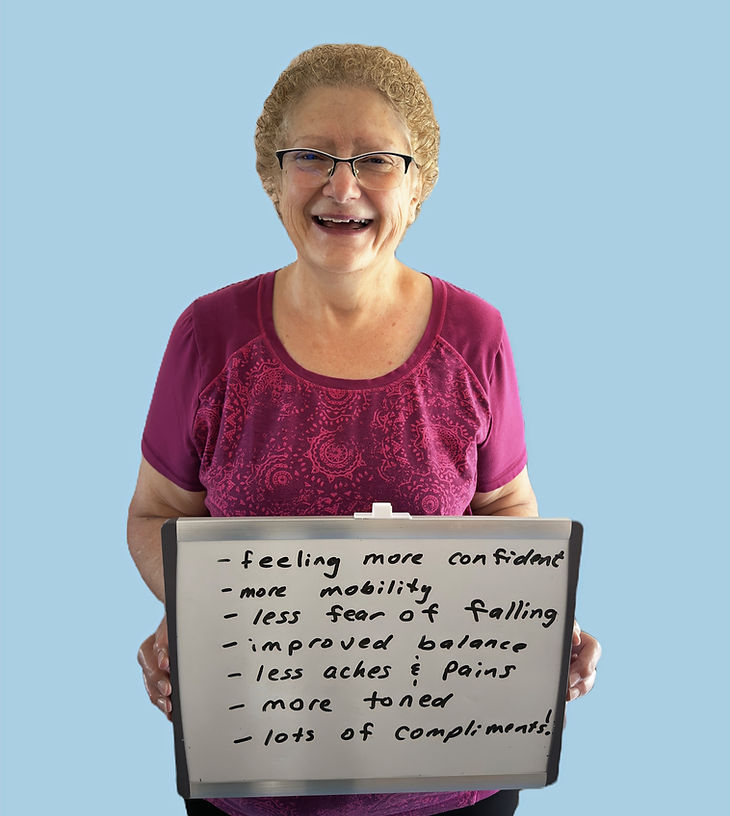 - feeling more confident
- more mobility
- less fear of falling
- improved balance
- less aches & pains
- more toned
- lots of compliments!